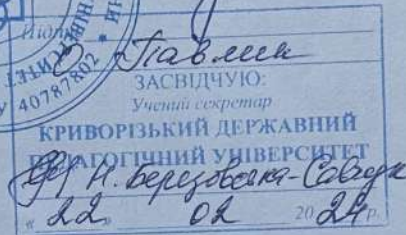 Підпис
О. Павлик
ЗАСВІДЧУЮ:
Учений секретар
КРИВОРІЗЬКИЙ ДЕРЖАВНИЙ
ПЕДАГОГІЧНИЙ УНІВЕРСИТЕТ
Н. Березовська-Савчук
" 22 " 02 20 24 р.
40787802 *